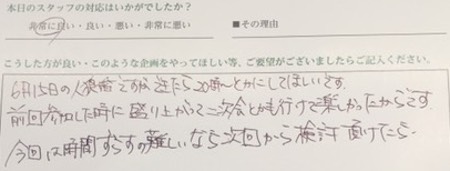 本日のスタッフの対応はいかがでしたか？
非常に良い・良い・悪い・非常に悪い
■その理由
こうした方が良い・このような企画をやってほしい等、ご要望がございましたらご記入ください。
6月15日の人狼ですが 20時〜とかにしてほしいです。
前回参加した時に 盛り上がって二次会とかも行けて楽しかったからです
今回は時間ずらすの難しいなら次回から検討頂けたら